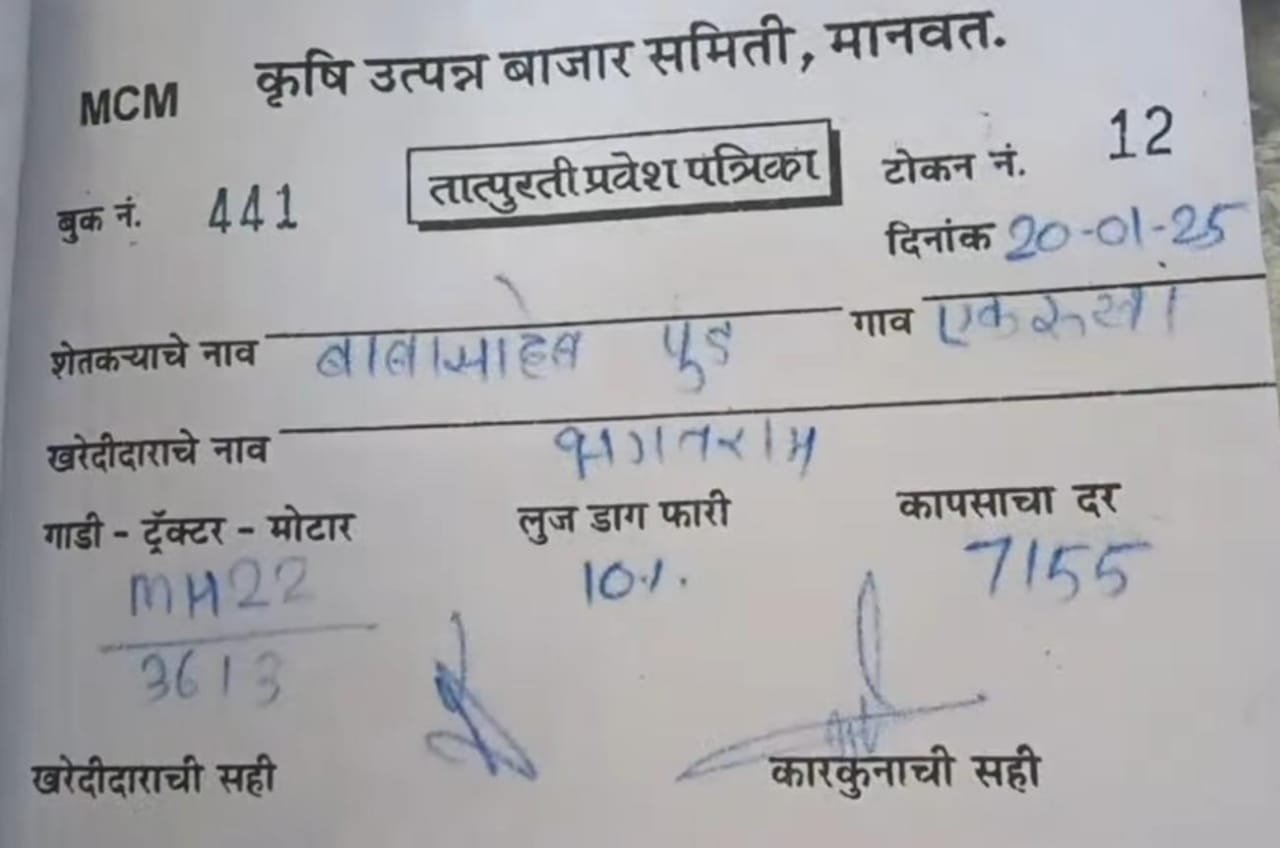 MCM कृषि उत्पन्न बाजार समिती, मानवत.
बुक नं. 441 तात्पुरती प्रवेश पत्रिका टोकन नं. 12
दिनांक 20-01-25
शेतकऱ्याचे नाव बाबासाहेब पुंड गाव एकरुखा
खरेदीदाराचे नाव भगतराम
गाडी - ट्रॅक्टर - मोटार लुज डाग फारी कापसाचा दर
MH22 10%. 7155
3613
खरेदीदाराची सही कारकुनाची सही